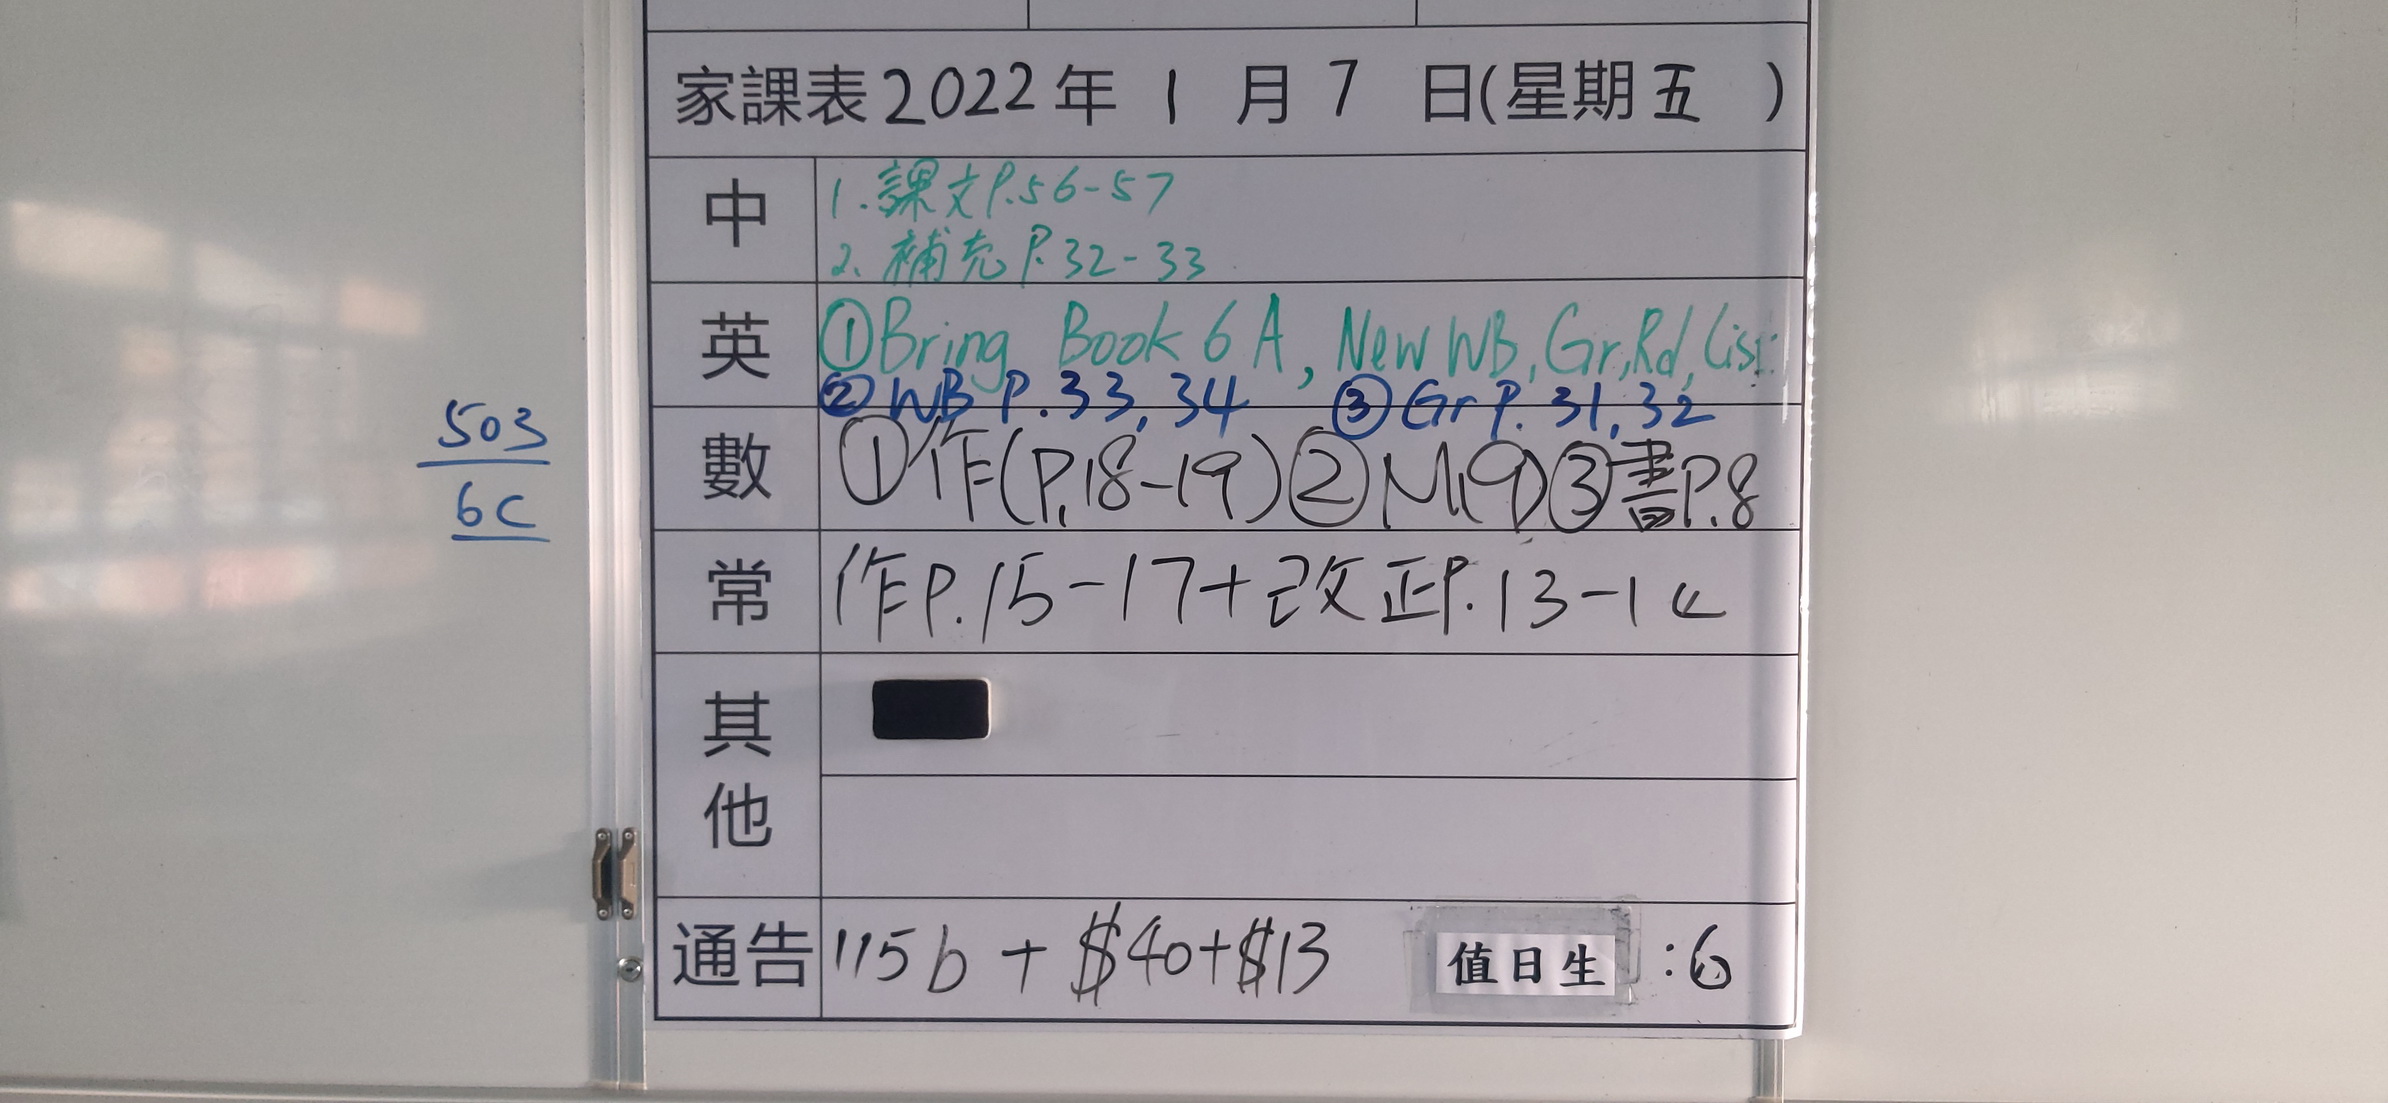 家課表2022年 1 月 7 日(星期五 )
中
1. 課文P.56-57
2. 補充P.32-33
英
①Bring Book 6A, New WB, Gr, Rd, List
②WB P.33, 34 ③Gr P.31, 32
503
6C
數
①作(P.18-19)②M(9)③書P.8
常
作P.15-17+改正P.13-14
其他
通告
115b + $40+$13
值日生 :6